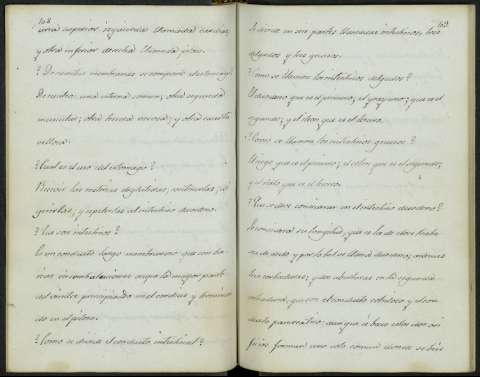 102
una superior, izquierda llamada cardias,
y otra inferior derecha llamada píloro.
? De cuántas membranas se compone el estomago?
De cuatro: una interna comun; otra segunda
muscular; otra tercera nerviosa; y otra cuarta
vellosa.
? Cual es el uso del estomago?
Recivir los materiales digestibles,
y repelerlos al intestino duodeno.
? Que son intestinos?
Es un conducto largo membranoso que con va-
rias circumbalaciones ocupa la mayor parte
del vientre principiando en el
do en el
? Como se divide el conducto intestinal?
103
Se divide en seis partes llamadas intestinos, tres
delgados y tres gruesos.
? Como se llaman los intestinos delgados?
El duodeno que es el primero; el yeyuno; que es el
segundo; y el ileon que es el tercero.
? Como se llaman los intestinos gruesos?
El ciego que es el primero; el colon que es el segundo;
y el recto que es el tercero.
? Que se debe considerar en el intestino duodeno?
Se considera su longitud, que es la de doce traba-
de dedo y por lo tal se llama duodeno;
tres corbaduras; y dos abolturas en la segunda
corbadura, que con el conducto coledoco y el con-
ducto pancreatico; aunque á veces estos dos ori-
ficios forman uno solo comun donde se